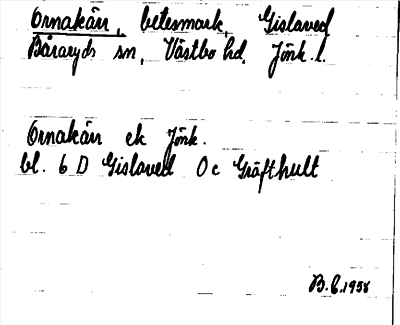 Ornakärr, betesmark, Gislaved
Båraryds sn, Västbo hd, Jönk. l.
Ornakärr ek Jönk.
bl. 6 D Gislaved 0 c Gräfthult
B. E. 1958